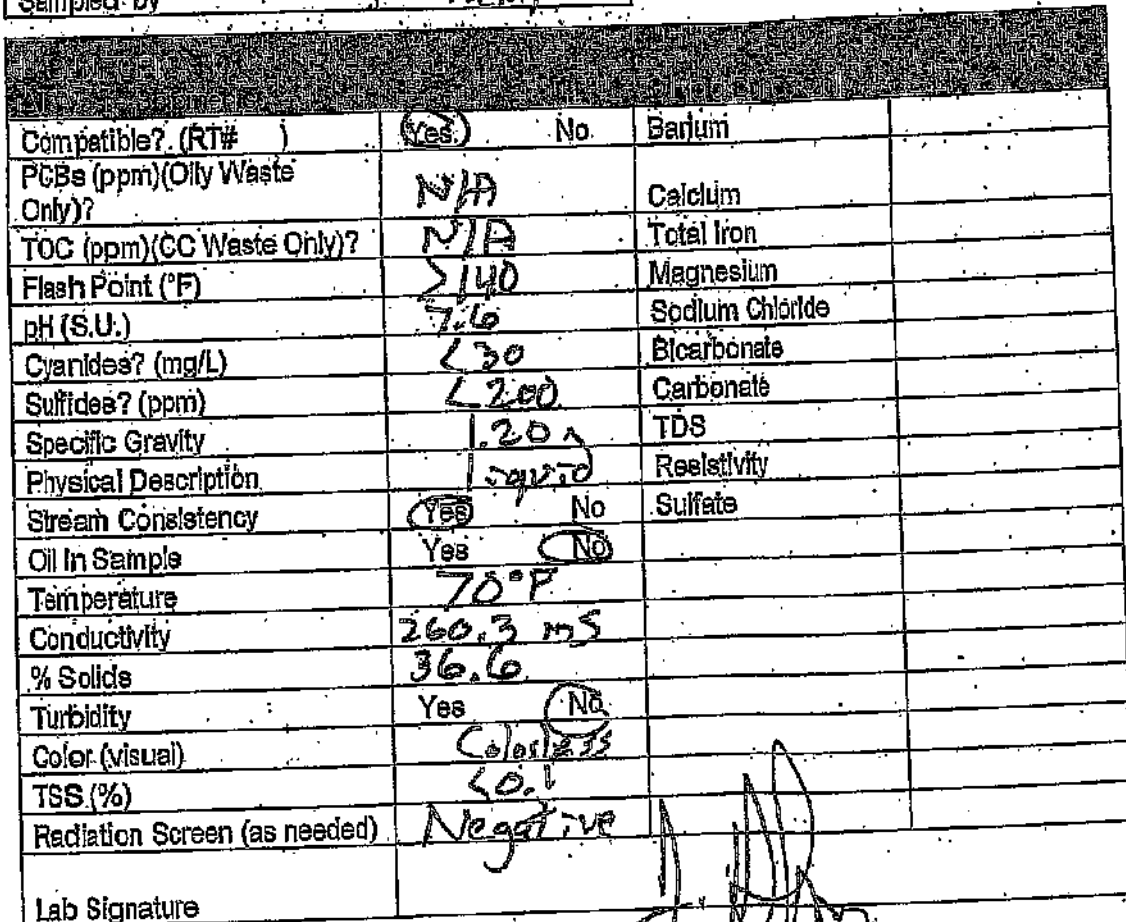 Sampled by
Compatible? (RT# ) Yes No Barium
PCBs (ppm)(Oily Waste
Only)? N/A Calcium
TOC (ppm)(CC Waste Only)? N/A Total Iron
Flash Point (°F) >140 Magnesium
pH (S.U.) 7.6 Sodium Chloride
Cyanides? (mg/L) <30 Bicarbonate
Sulfides? (ppm) <200 Carbonate
Specific Gravity 1.20 TDS
Physical Description Liquid Resistivity
Stream Consistency Yes No Sulfate
Oil In Sample Yes No
Temperature 70°F
Conductivity 260.3 mS
% Solids 36.6
Turbidity Yes No
Color (visual) Colorless
TSS (%) <0.1
Radiation Screen (as needed) Negative
Lab Signature